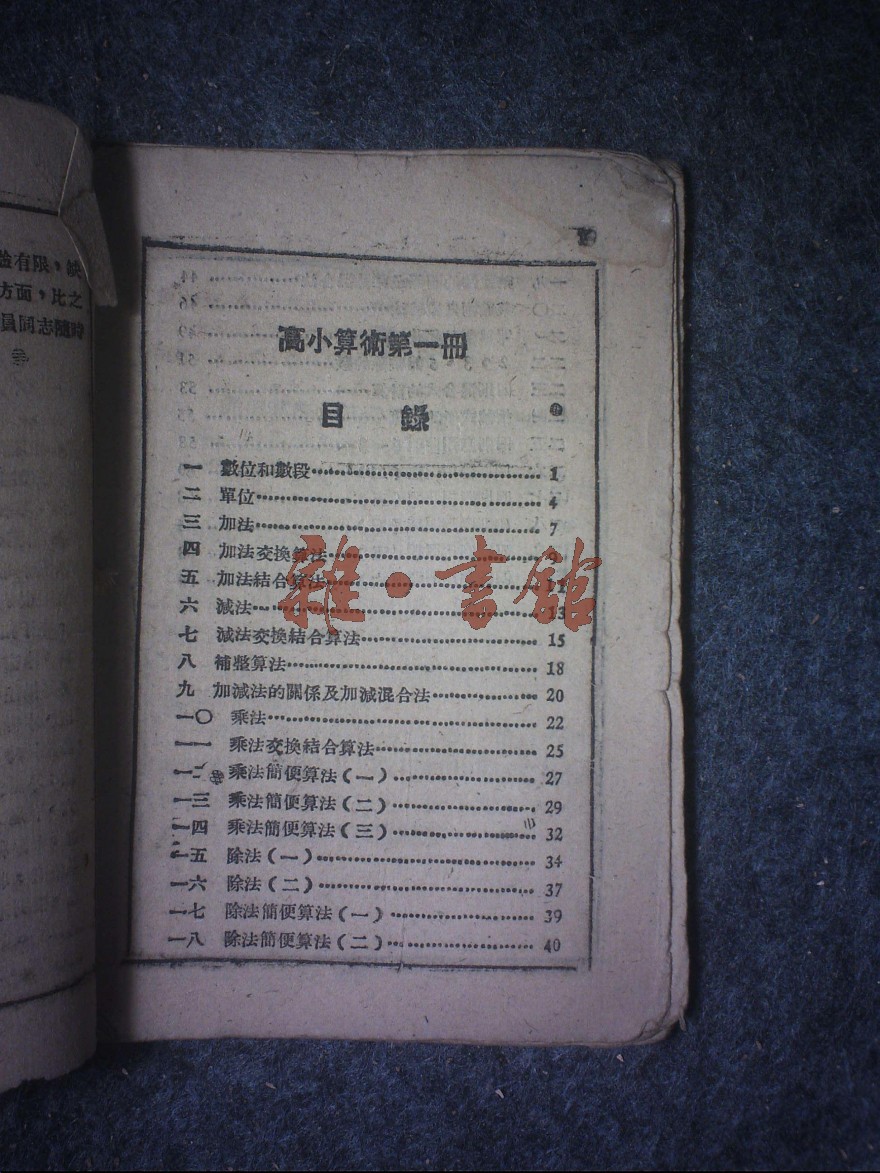 驗有限，缺
方面，比之
員同志隨時
高小算術第一冊
目錄
一 數位和數段 1
二 單位 4
三 加法 7
四 加法交換算法 9
五 加法結合算法 11
六 減法 13
七 減法交換結合算法 15
八 補整算法 18
九 加減法的關係及加減混合法 20
一〇 乘法 22
一一 乘法交換結合算法 25
一二 乘法簡便算法（一） 27
一三 乘法簡便算法（二） 29
一四 乘法簡便算法（三） 32
一五 除法（一） 34
一六 除法（二） 37
一七 除法簡便算法（一） 39
一八 除法簡便算法（二） 40
雜·書館